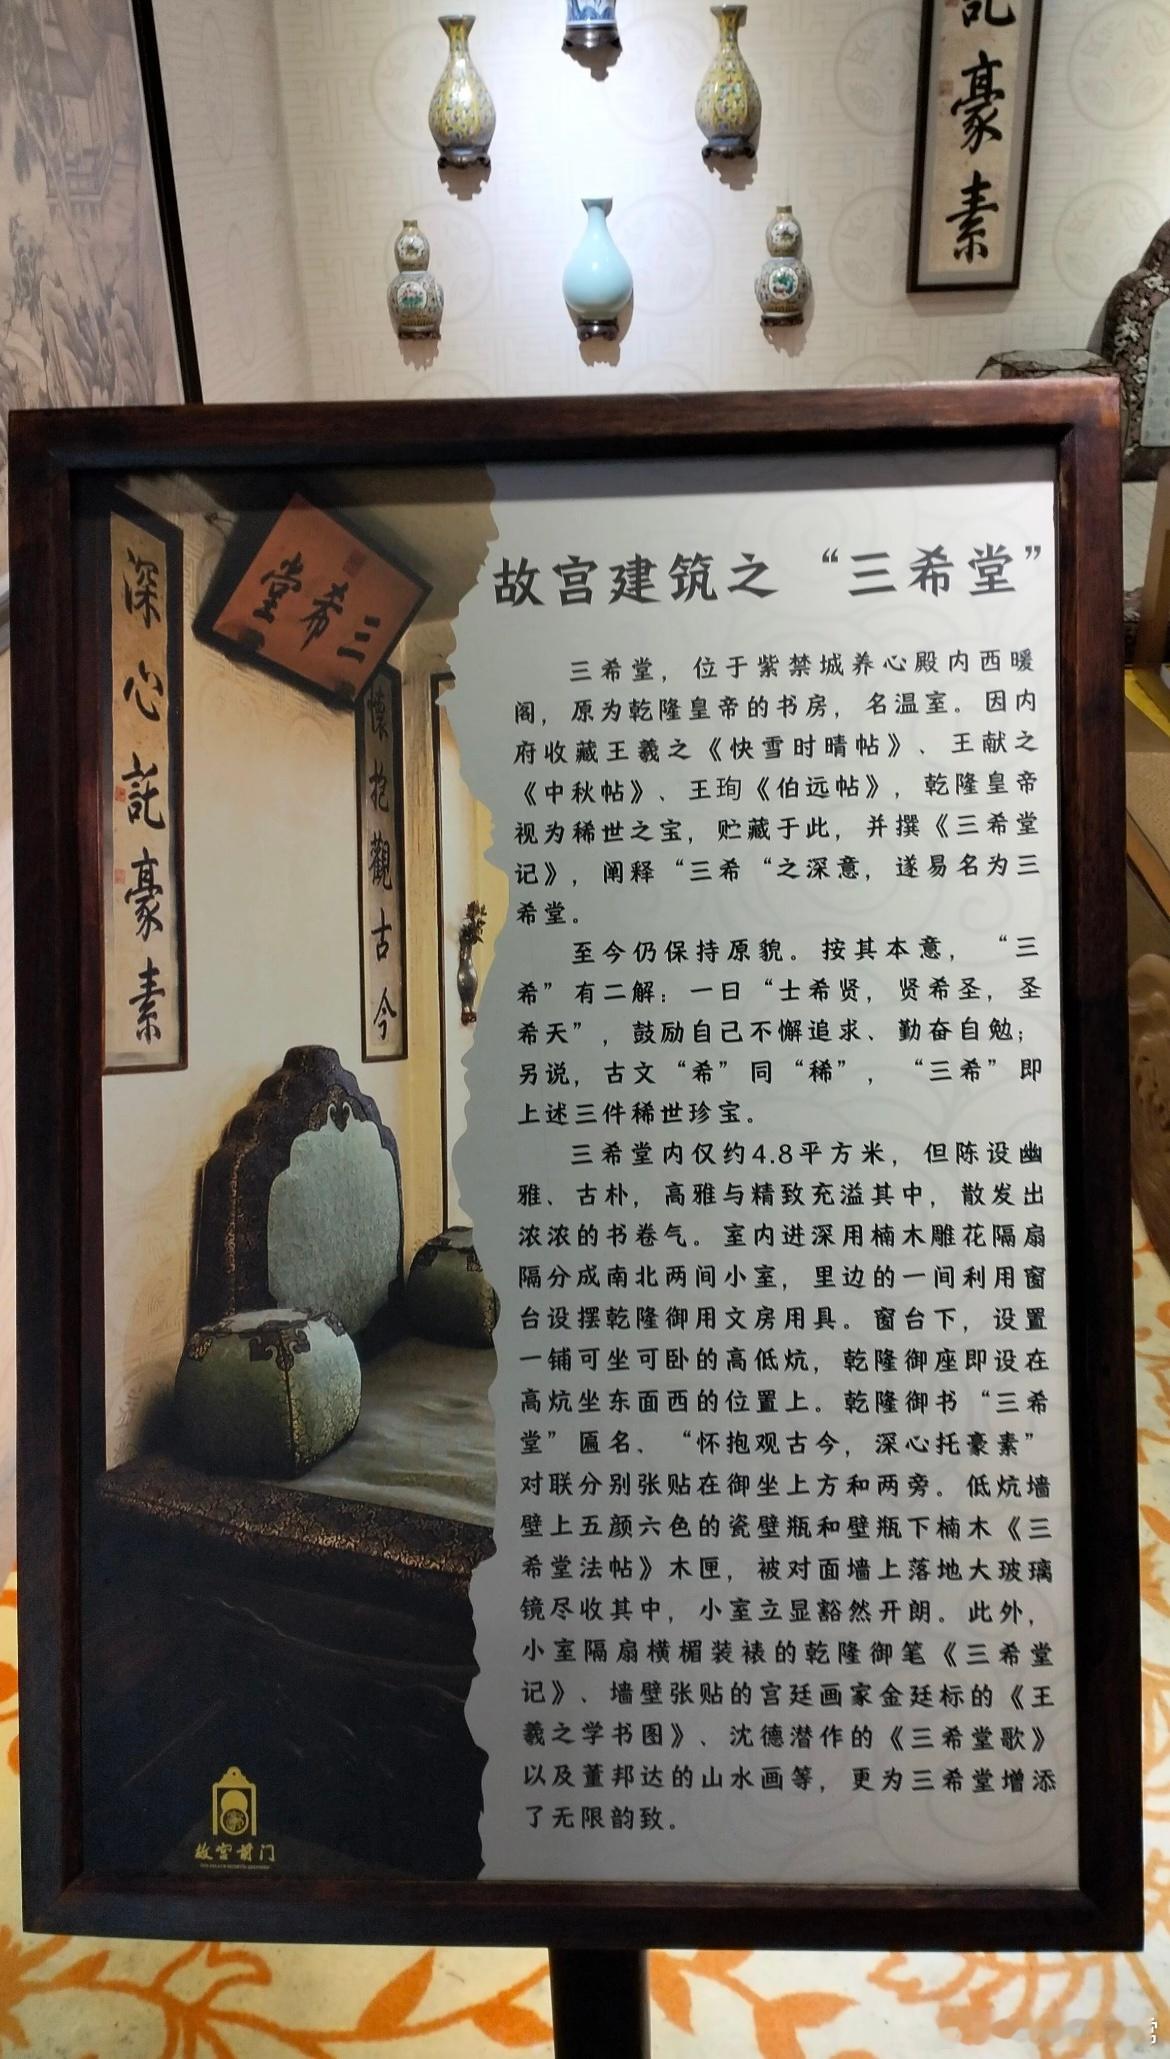 託豪素
深心託豪素
三希堂
懷抱觀古今
故宫建筑之“三希堂”
三希堂，位于紫禁城养心殿内西暖
阁，原为乾隆皇帝的书房，名温室。因内
府收藏王羲之《快雪时晴帖》、王献之
《中秋帖》、王珣《伯远帖》，乾隆皇帝
视为稀世之宝，贮藏于此，并撰《三希堂
记》，阐释“三希“之深意，遂易名为三
希堂。
至今仍保持原貌。按其本意，“三
希”有二解：一曰“士希贤，贤希圣，圣
希天”，鼓励自己不懈追求、勤奋自勉；
另说，古文“希”同“稀”，“三希”即
上述三件稀世珍宝。
三希堂内仅约4.8平方米，但陈设幽
雅、古朴，高雅与精致充溢其中，散发出
浓浓的书卷气。室内进深用楠木雕花隔扇
隔分成南北两间小室，里边的一间利用窗
台设摆乾隆御用文房用具。窗台下，设置
一铺可坐可卧的高低炕，乾隆御座即设在
高炕坐东面西的位置上。乾隆御书“三希
堂”匾名、“怀抱观古今，深心托豪素”
对联分别张贴在御坐上方和两旁。低炕墙
壁上五颜六色的瓷壁瓶和壁瓶下楠木《三
希堂法帖》木匣，被对面墙上落地大玻璃
镜尽收其中，小室立显豁然开朗。此外，
小室隔扇横楣装裱的乾隆御笔《三希堂
记》、墙壁张贴的宫廷画家金廷标的《王
羲之学书图》、沈德潜作的《三希堂歌》
以及董邦达的山水画等，更为三希堂增添
了无限韵致。
故宫前门